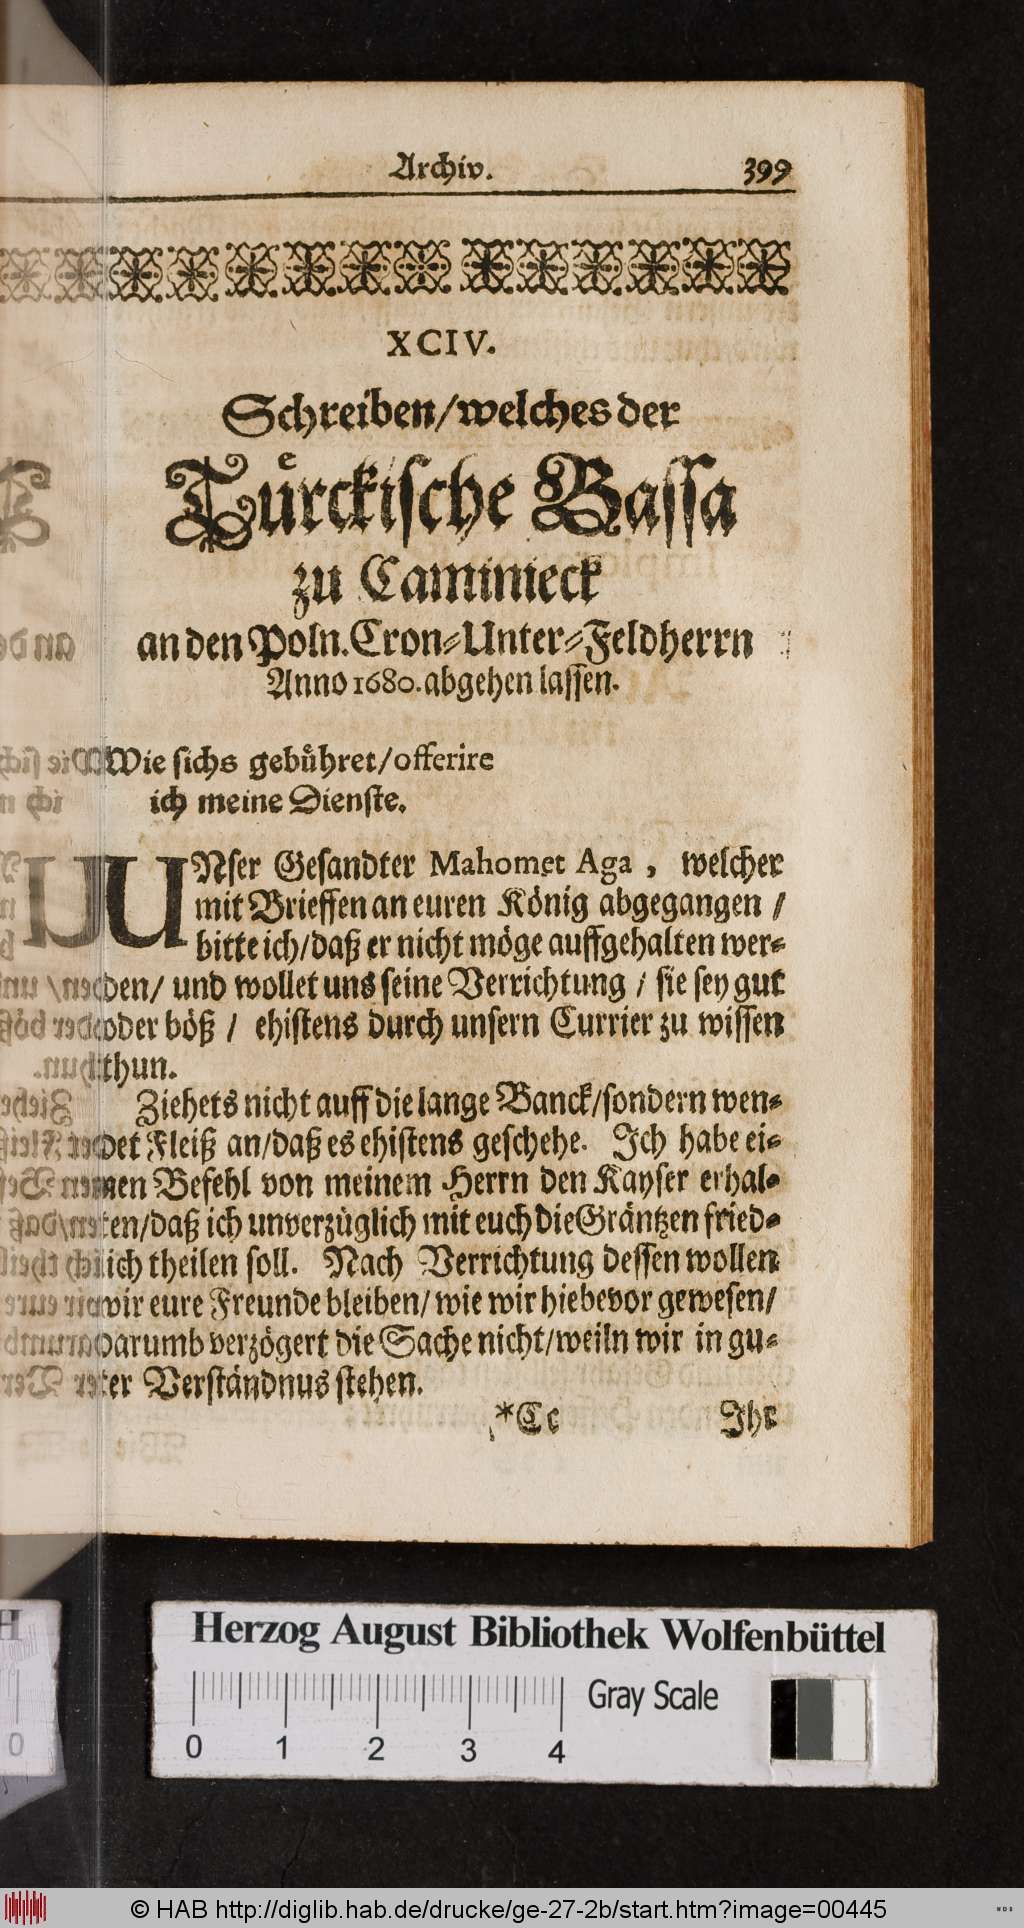 Archiv. 399
XCIV.
Schreiben/welches der
Tuͤrckische Bassa
zu Caminieck
an den Poln. Cron-Unter-Feldherrn
Anno 1680. abgehen lassen.
Wie sichs gebuͤhret/offerire
ich meine Dienste.
UNser Gesandter Mahomet Aga, welcher
mit Brieffen an euren König abgegangen /
bitte ich/daß er nicht möge auffgehalten wer-
den/ und wollet uns seine Verrichtung / sie sey gut
oder böß / ehistens durch unsern Currier zu wissen
thun.
Ziehets nicht auff die lange Banck/sondern wen-
det Fleiß an/daß es ehistens geschehe. Ich habe ei-
nen Befehl von meinem Herrn den Kayser erhal-
ten/daß ich unverzüglich mit euch die Gräntzen fried-
lich theilen soll. Nach Verrichtung dessen wollen
wir eure Freunde bleiben/ wie wir hiebevor gewesen/
Darumb verzögert die Sache nicht/weiln wir in gu-
ter Verständnus stehen.
*Cc Ihr
Herzog August Bibliothek Wolfenbüttel
0 1 2 3 4 Gray Scale
© HAB http://diglib.hab.de/drucke/ge-27-2b/start.htm?image=00445